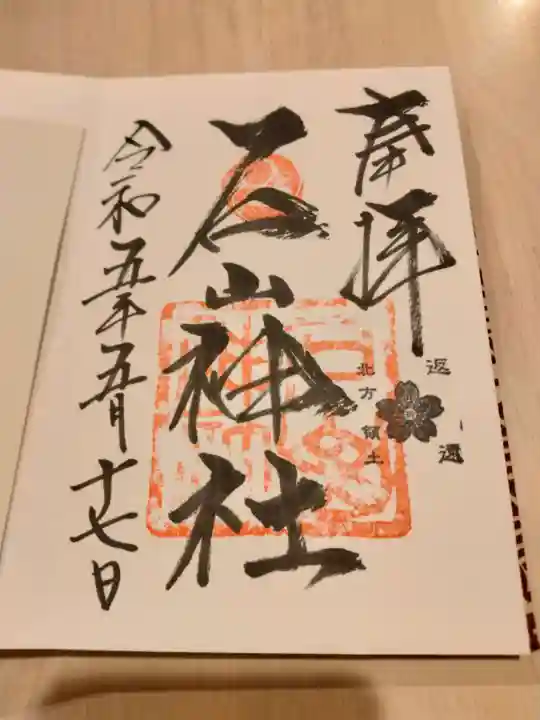 奉拝
返還
北方領土
石山神社
令和五年五月十七日